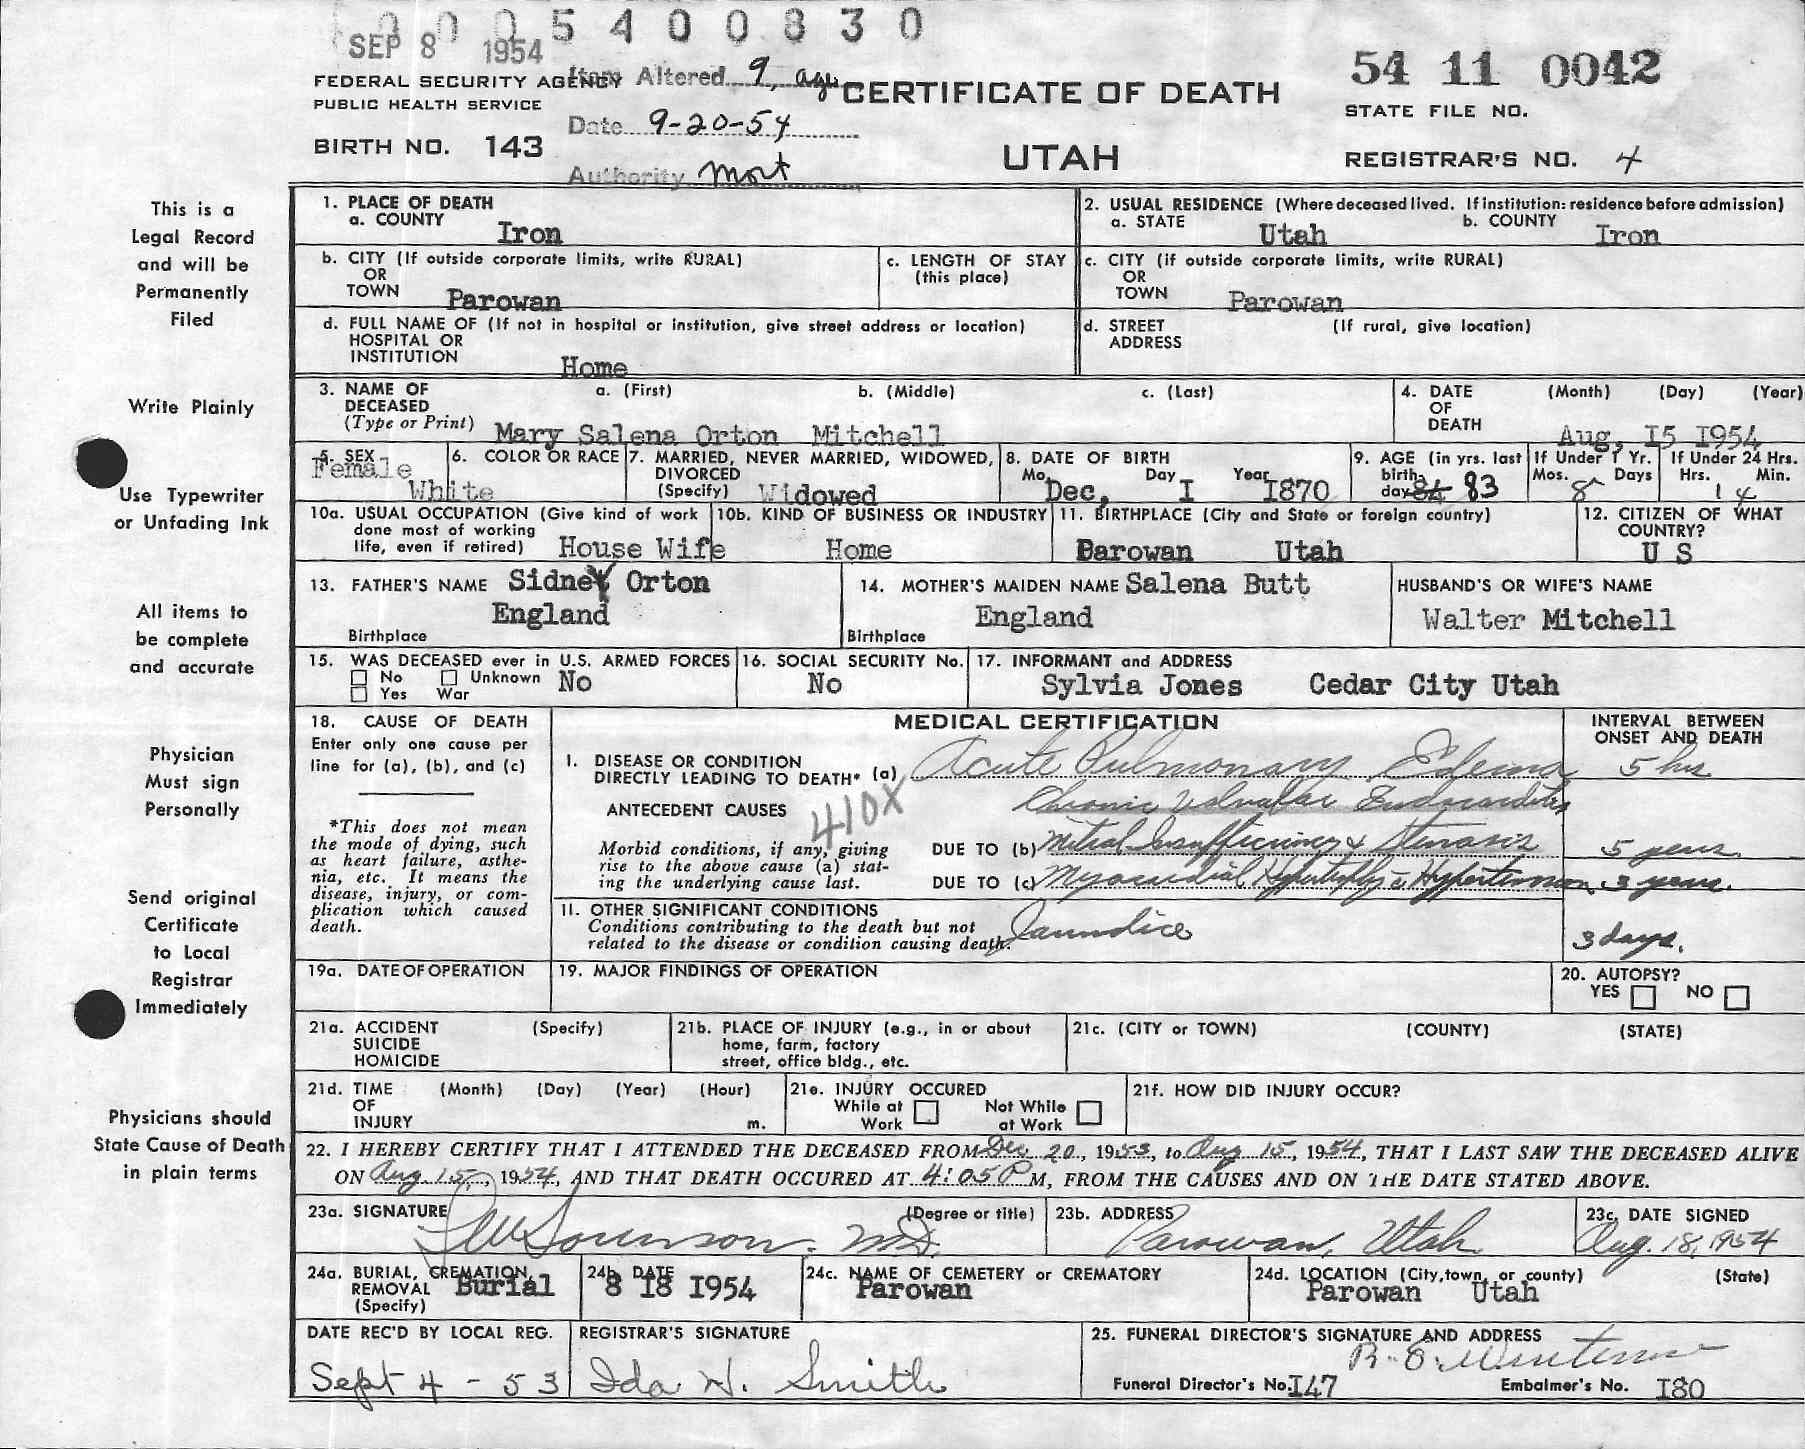 0 0 0 5 4 0 0 8 3 0
SEP 8 1954
54 11 0042
FEDERAL SECURITY AGENCY
Item Altered 9, age
CERTIFICATE OF DEATH
PUBLIC HEALTH SERVICE
STATE FILE NO.
Date 9-20-54
BIRTH NO. 143
UTAH
REGISTRAR'S NO. 4
Authority Mort
This is a
Legal Record
and will be
Permanently
Filed
Write Plainly
Use Typewriter
or Unfading Ink
All items to
be complete
and accurate
Physician
Must sign
Personally
Send original
Certificate
to Local
Registrar
Immediately
Physicians should
State Cause of Death
in plain terms
1. PLACE OF DEATH
a. COUNTY Iron
2. USUAL RESIDENCE (Where deceased lived. If institution: residence before admission)
a. STATE Utah b. COUNTY Iron
b. CITY (If outside corporate limits, write RURAL)
OR
TOWN Parowan
c. LENGTH OF STAY
(this place)
c. CITY (if outside corporate limits, write RURAL)
OR
TOWN Parowan
d. FULL NAME OF (If not in hospital or institution, give street address or location)
HOSPITAL OR
INSTITUTION Home
d. STREET (If rural, give location)
ADDRESS
3. NAME OF a. (First) b. (Middle) c. (Last)
DECEASED
(Type or Print) Mary Salena Orton Mitchell
4. DATE (Month) (Day) (Year)
OF
DEATH Aug, I5 I954
5. SEX
Female
6. COLOR OR RACE
White
7. MARRIED, NEVER MARRIED, WIDOWED,
DIVORCED
(Specify) Widowed
8. DATE OF BIRTH
Mo. Day Year
Dec, I I870
9. AGE (in yrs. last
birth
day 84 83
If Under 1 Yr.
Mos. Days
8
If Under 24 Hrs.
Hrs. Min.
14
10a. USUAL OCCUPATION (Give kind of work
done most of working
life, even if retired) House Wife
10b. KIND OF BUSINESS OR INDUSTRY
Home
11. BIRTHPLACE (City and State or foreign country)
Parowan Utah
12. CITIZEN OF WHAT
COUNTRY?
U S
13. FATHER'S NAME Sidney Orton
England
Birthplace
14. MOTHER'S MAIDEN NAME Salena Butt
England
Birthplace
HUSBAND'S OR WIFE'S NAME
Walter Mitchell
15. WAS DECEASED ever in U.S. ARMED FORCES
No Unknown No
Yes War
16. SOCIAL SECURITY No.
No
17. INFORMANT and ADDRESS
Sylvia Jones Cedar City Utah
18. CAUSE OF DEATH
Enter only one cause per
line for (a), (b), and (c)
*This does not mean
the mode of dying, such
as heart failure, asthe-
nia, etc. It means the
disease, injury, or com-
plication which caused
death.
MEDICAL CERTIFICATION
INTERVAL BETWEEN
ONSET AND DEATH
I. DISEASE OR CONDITION
DIRECTLY LEADING TO DEATH* (a) Acute Pulmonary Edema 5 hrs
ANTECEDENT CAUSES 410X Chronic Valvular Endocarditis
Morbid conditions, if any, giving
rise to the above cause (a) stat-
ing the underlying cause last.
DUE TO (b) Mitral Insufficiency & Stenosis 5 years
DUE TO (c) Myocardial Hypertrophy c Hypertension 3 years.
II. OTHER SIGNIFICANT CONDITIONS
Conditions contributing to the death but not
related to the disease or condition causing death. Jaundice 3 days.
19a. DATE OF OPERATION
19. MAJOR FINDINGS OF OPERATION
20. AUTOPSY?
YES NO
21a. ACCIDENT (Specify)
SUICIDE
HOMICIDE
21b. PLACE OF INJURY (e.g., in or about
home, farm, factory
street, office bldg., etc.
21c. (CITY or TOWN) (COUNTY) (STATE)
21d. TIME (Month) (Day) (Year) (Hour)
OF
INJURY m.
21e. INJURY OCCURED
While at Not While
Work at Work
21f. HOW DID INJURY OCCUR?
22. I HEREBY CERTIFY THAT I ATTENDED THE DECEASED FROM Dec 20, 1953, to Aug 15, 1954, THAT I LAST SAW THE DECEASED ALIVE
ON Aug 15, 1954, AND THAT DEATH OCCURED AT 4:05 P M, FROM THE CAUSES AND ON THE DATE STATED ABOVE.
23a. SIGNATURE (Degree or title)
Sorenson. M.D.
23b. ADDRESS
Parowan, Utah
23c. DATE SIGNED
Aug. 18, 1954
24a. BURIAL, CREMATION,
REMOVAL Burial
(Specify)
24b. DATE
8 I8 I954
24c. NAME OF CEMETERY or CREMATORY
Parowan
24d. LOCATION (City, town, or county) (State)
Parowan Utah
DATE REC'D BY LOCAL REG.
Sept 4 - 53
REGISTRAR'S SIGNATURE
Ida N. Smith
25. FUNERAL DIRECTOR'S SIGNATURE AND ADDRESS
Funeral Director's No. I47 Embalmer's No. I80